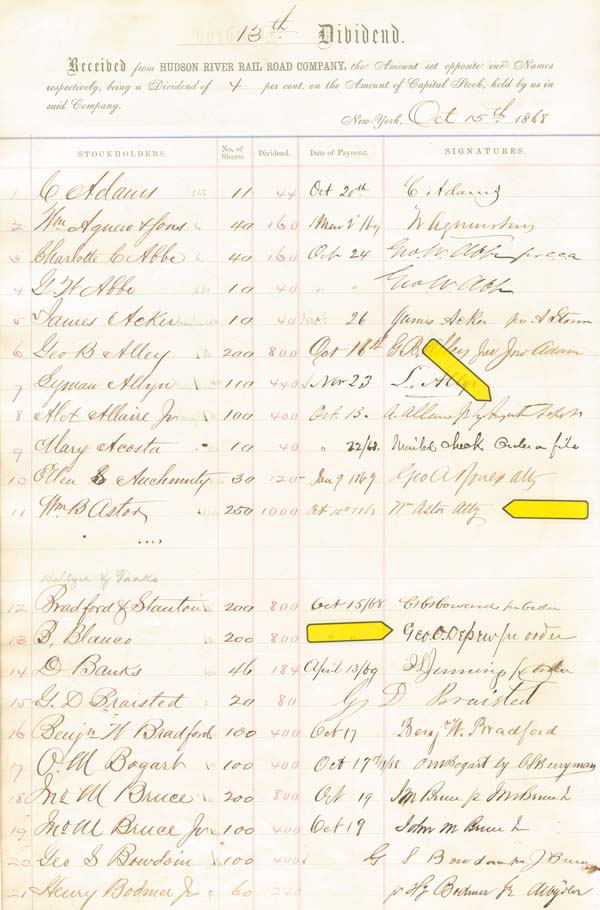 13th Dividend.
Received from HUDSON RIVER RAIL ROAD COMPANY, the Amount set opposite our Names
respectively, being a Dividend of 4 per cent. on the Amount of Capital Stock, held by us in
said Company.
New-York, Oct 15th 1868
STOCKHOLDERS. No. of Shares. Dividend. Date of Payment. SIGNATURES.
1 C Adams 11 44 Oct 20th C. Adams
2 Wm Agnew & Sons 40 160
3 Charlotte C Abbe 40 160 Oct 24 Geo. W. Abbe
4 G W Abbe 10 40 " " Geo. W. Abbe
5 James Acker 10 40 26 James Acker
6 Geo B Alley 200 800 Oct 16th G.B. Alley
7 Lyman Allyn 110 440 Nov 23 L. Allyn
8 Alex Allaire Jr 100 400 Oct. 15.
9 Mary Acosta 10 40 " 22/68. Mailed check Order on file
10 Ellen Auchmuty 30 120 Jan 9 1869 Geo A Jones Atty
11 Wm B Astor 250 1000 Wm Astor Atty
12 Bradford & Stanton 200 800 Oct 15/68
13 B. Blanco 200 800 Geo. C. Depew pr order
14 D Banks 46 184 April 13/69
15 G. D Braisted 20 80 G D Braisted
16 Benjn W Bradford 100 400 Oct 17 Benj W. Bradford
17 O. M Bogart 100 400 Oct 17th OM Bogart by Berryman
18 Jno M Bruce 200 800 Oct 19 Jn Bruce
19 Jno M Bruce Jr 100 400 Oct 19 John M Bruce Jr
20 Geo S Bowdoin 100 400 G S Bowdoin
21 Henry Bodmer Jr 60 240 Hy Bodmer Jr